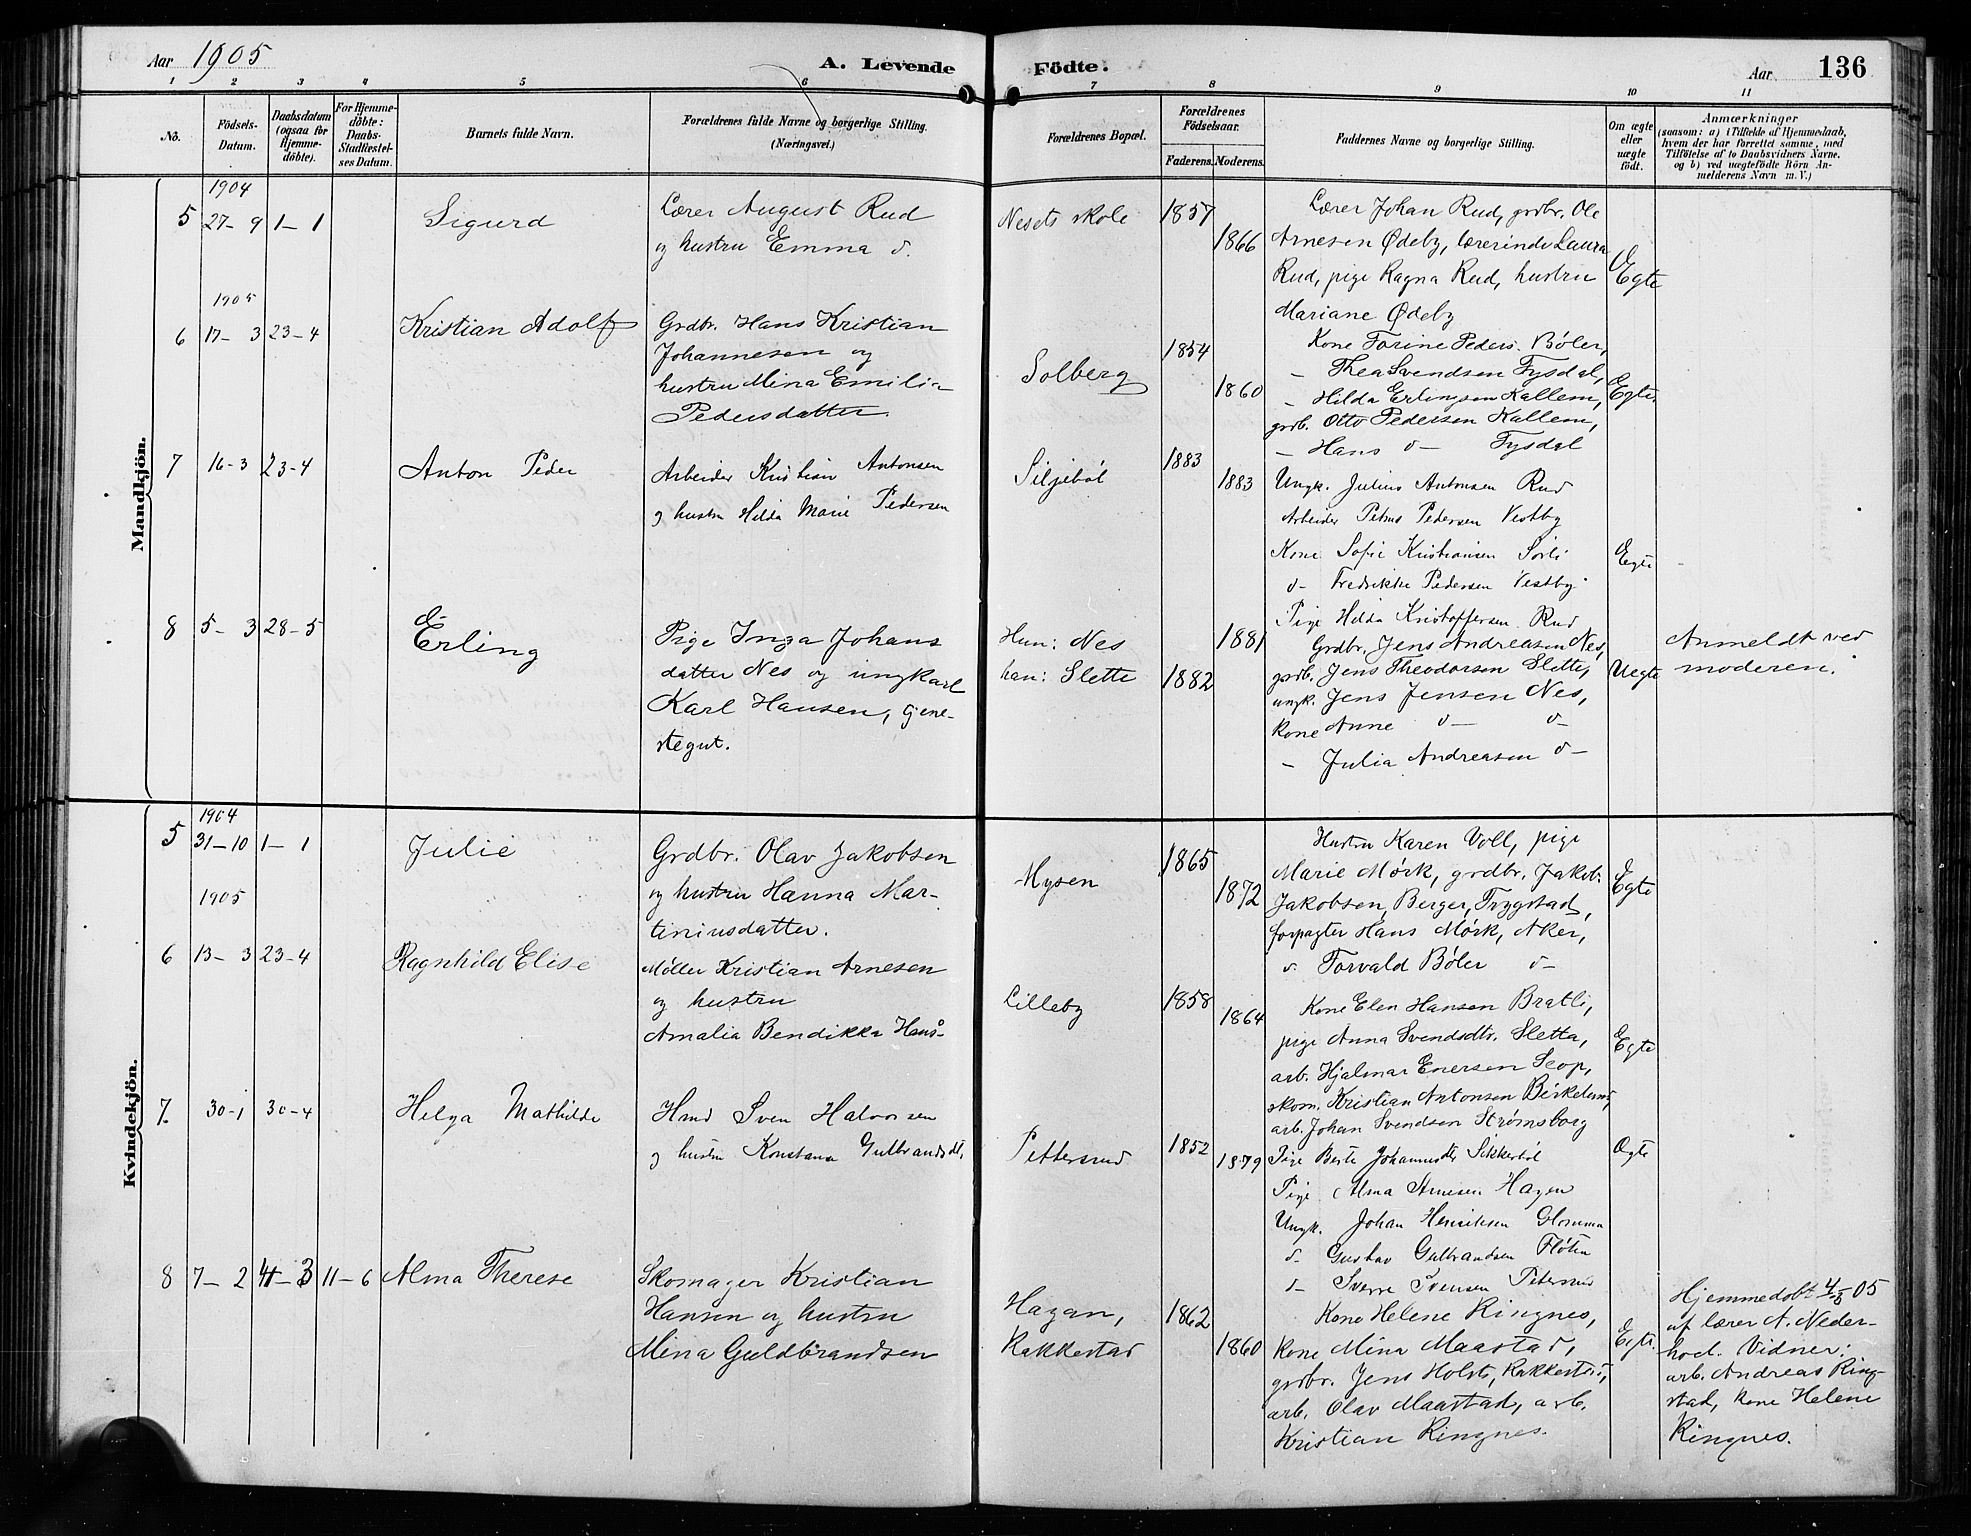 Aar 1905
A. Levende
Födte.
Aar
136
1 2 3 4 5 6 7 8 9 10 11
No.
Födsels-
Datum.
Daabsdatum
(ogsaa for
Hjemme-
döbte).
For Hjemme-
döbte:
Daabs-
Stadfæstel-
ses Datum.
Barnets fulde Navn.
Forældrenes fulde Navne og borgerlige Stilling.
(Næringsvei.)
Forældrenes Bopæl.
Forældrenes
Födselsaar.
Faderens. Moderens.
Faddernes Navne og borgerlige Stilling.
Om ægte
eller
uægte
født.
Anmærkninger
(saasom: a) i Tilfælde af Hjemmedaab,
hvem der har forrettet samme, med
Tilföielse af to Daabsvidners Navne.
og b) ved uægtefödte Börn An-
melderens Navn m. V.)
Mandkjön.
1904
5 27-9 1-1
Sigurd
Lærer August Rud
og hustru Emma d.
Nesets skole
1857
1866
Lærer Johan Rud, grdbr. Ole
Arnesen Ødeby, lærerinde Laura
Rud, pige Ragna Rud, hustru
Mariane Ødeby
Egte
1905
6 17-3 23-4
Kristian Adolf
Grdbr. Hans Kristian
Johannesen og
hustru Mina Emilia
Pedersdatter.
Solberg
1854
1860
Kone Torine Peders. Bøler,
- Thea Svendsen Fysdal,
- Hilda Erlingsen Kallem,
grdb. Otto Pedersen Kallem,
- Hans d- Fysdal
Egte.
7 16-3 23-4
Anton Peder
Arbeider Kristian Antonsen
og hustru Hilda Marie Pedersen
Siljebøl
1883
1883
Ungk. Julius Antonsen Rud
Arbeider Petrus Pedersen Vestby
Kone Sofie Kristiansen Sørli
d- Fredrikke Pedersen Vestby
Pige Hilda Kristoffersen Rud
Egte
8 5-3 28-5
Erling
Pige Inga Johans
datter Nes og ungkarl
Karl Hansen, tjene-
stegut.
Hun: Nes
han: Slette
1881
1882
Grdbr. Jens Andreasen Nes,
grdb. Jens Theodorsen Slette,
ungk. Jens Jensen Nes,
kone Anne d- d-
- Julia Andreasen d-
Uegte
Anmeldt ved
moderen.
Kvindekjön.
1904
5 31-10 1-1
Julie
Grdbr. Olav Jakobsen
og hustru Hanna Mar-
tiniusdatter.
Mysen
1865
1872
Hustru Karen Voll, pige
Marie Mørk, grdbr. Jakob
Jakobsen Berger, Trygstad,
forpagter Hans Mørk, Aker,
d. Torvald Bøler d-
Egte
1905
6 13-3 23-4
Ragnhild Elise
Møller Kristian Arnesen
og hustru
Amalia Bendikka Hans-
Lilleby
1858
1864
Kone Elen Hansen Bratli,
pige Anna Svendsdtr. Sletta,
arb. Hjalmar Enersen Scop,
skom. Kristian Antonsen
arb. Johan Svendsen Strømsborg
Egte
7. 30-1 30-4
Helga Mathilde
Hmd Sven Halvorsen
og hustru Konstanse Gulbrandsdt.
Pettersrud
1852
1879
Pige Berte Johannesdtr Sikkerbøl
Pige Alma Arnesen Hagen
Ungk. Johan Henriksen Glomma
d- Gustav Gulbrandsen Fløten
d- Sverre Svensen Petersrud
Ægte
8 7-2 4-3 11-6
Alma Therese
Skomager Kristian
Hansen og hustru
Mina Guldbrandsen
Hagan,
Rakkestad
1862
1860
Kone Helene Ringnes,
Kone Mina Maastad,
grdbr. Jens Holst, Rakkestad,
arb. Olav Maastad, arb.
Kristian Ringnes.
Egte.
Hjemmedøbt 4/3 05
af lærer A. Neder-
hoel. Vidner:
arb. Andreas Ring-
stad, kone Helene
Ringnes.